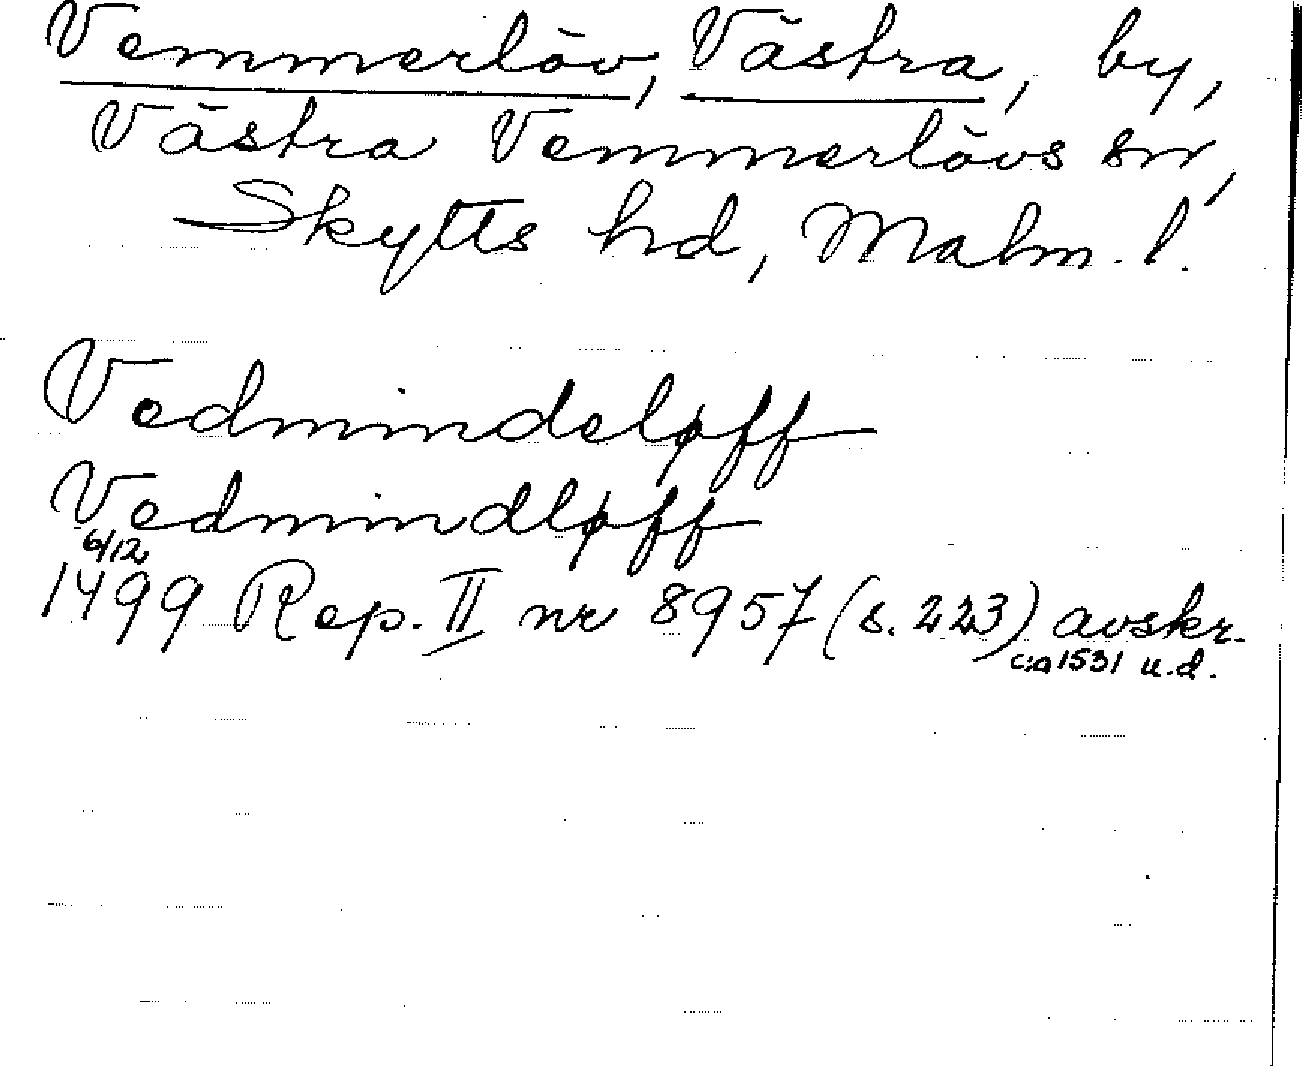 Vemmerlöv, Västra, by,
Västra Vemmerlövs sn,
Skytts hd, Malm. l.
Vedmindeløff
Vedmindløff
6/12
1499 Rep. II nr 8957 (s. 223) avskr.
ca 1531 u.d.